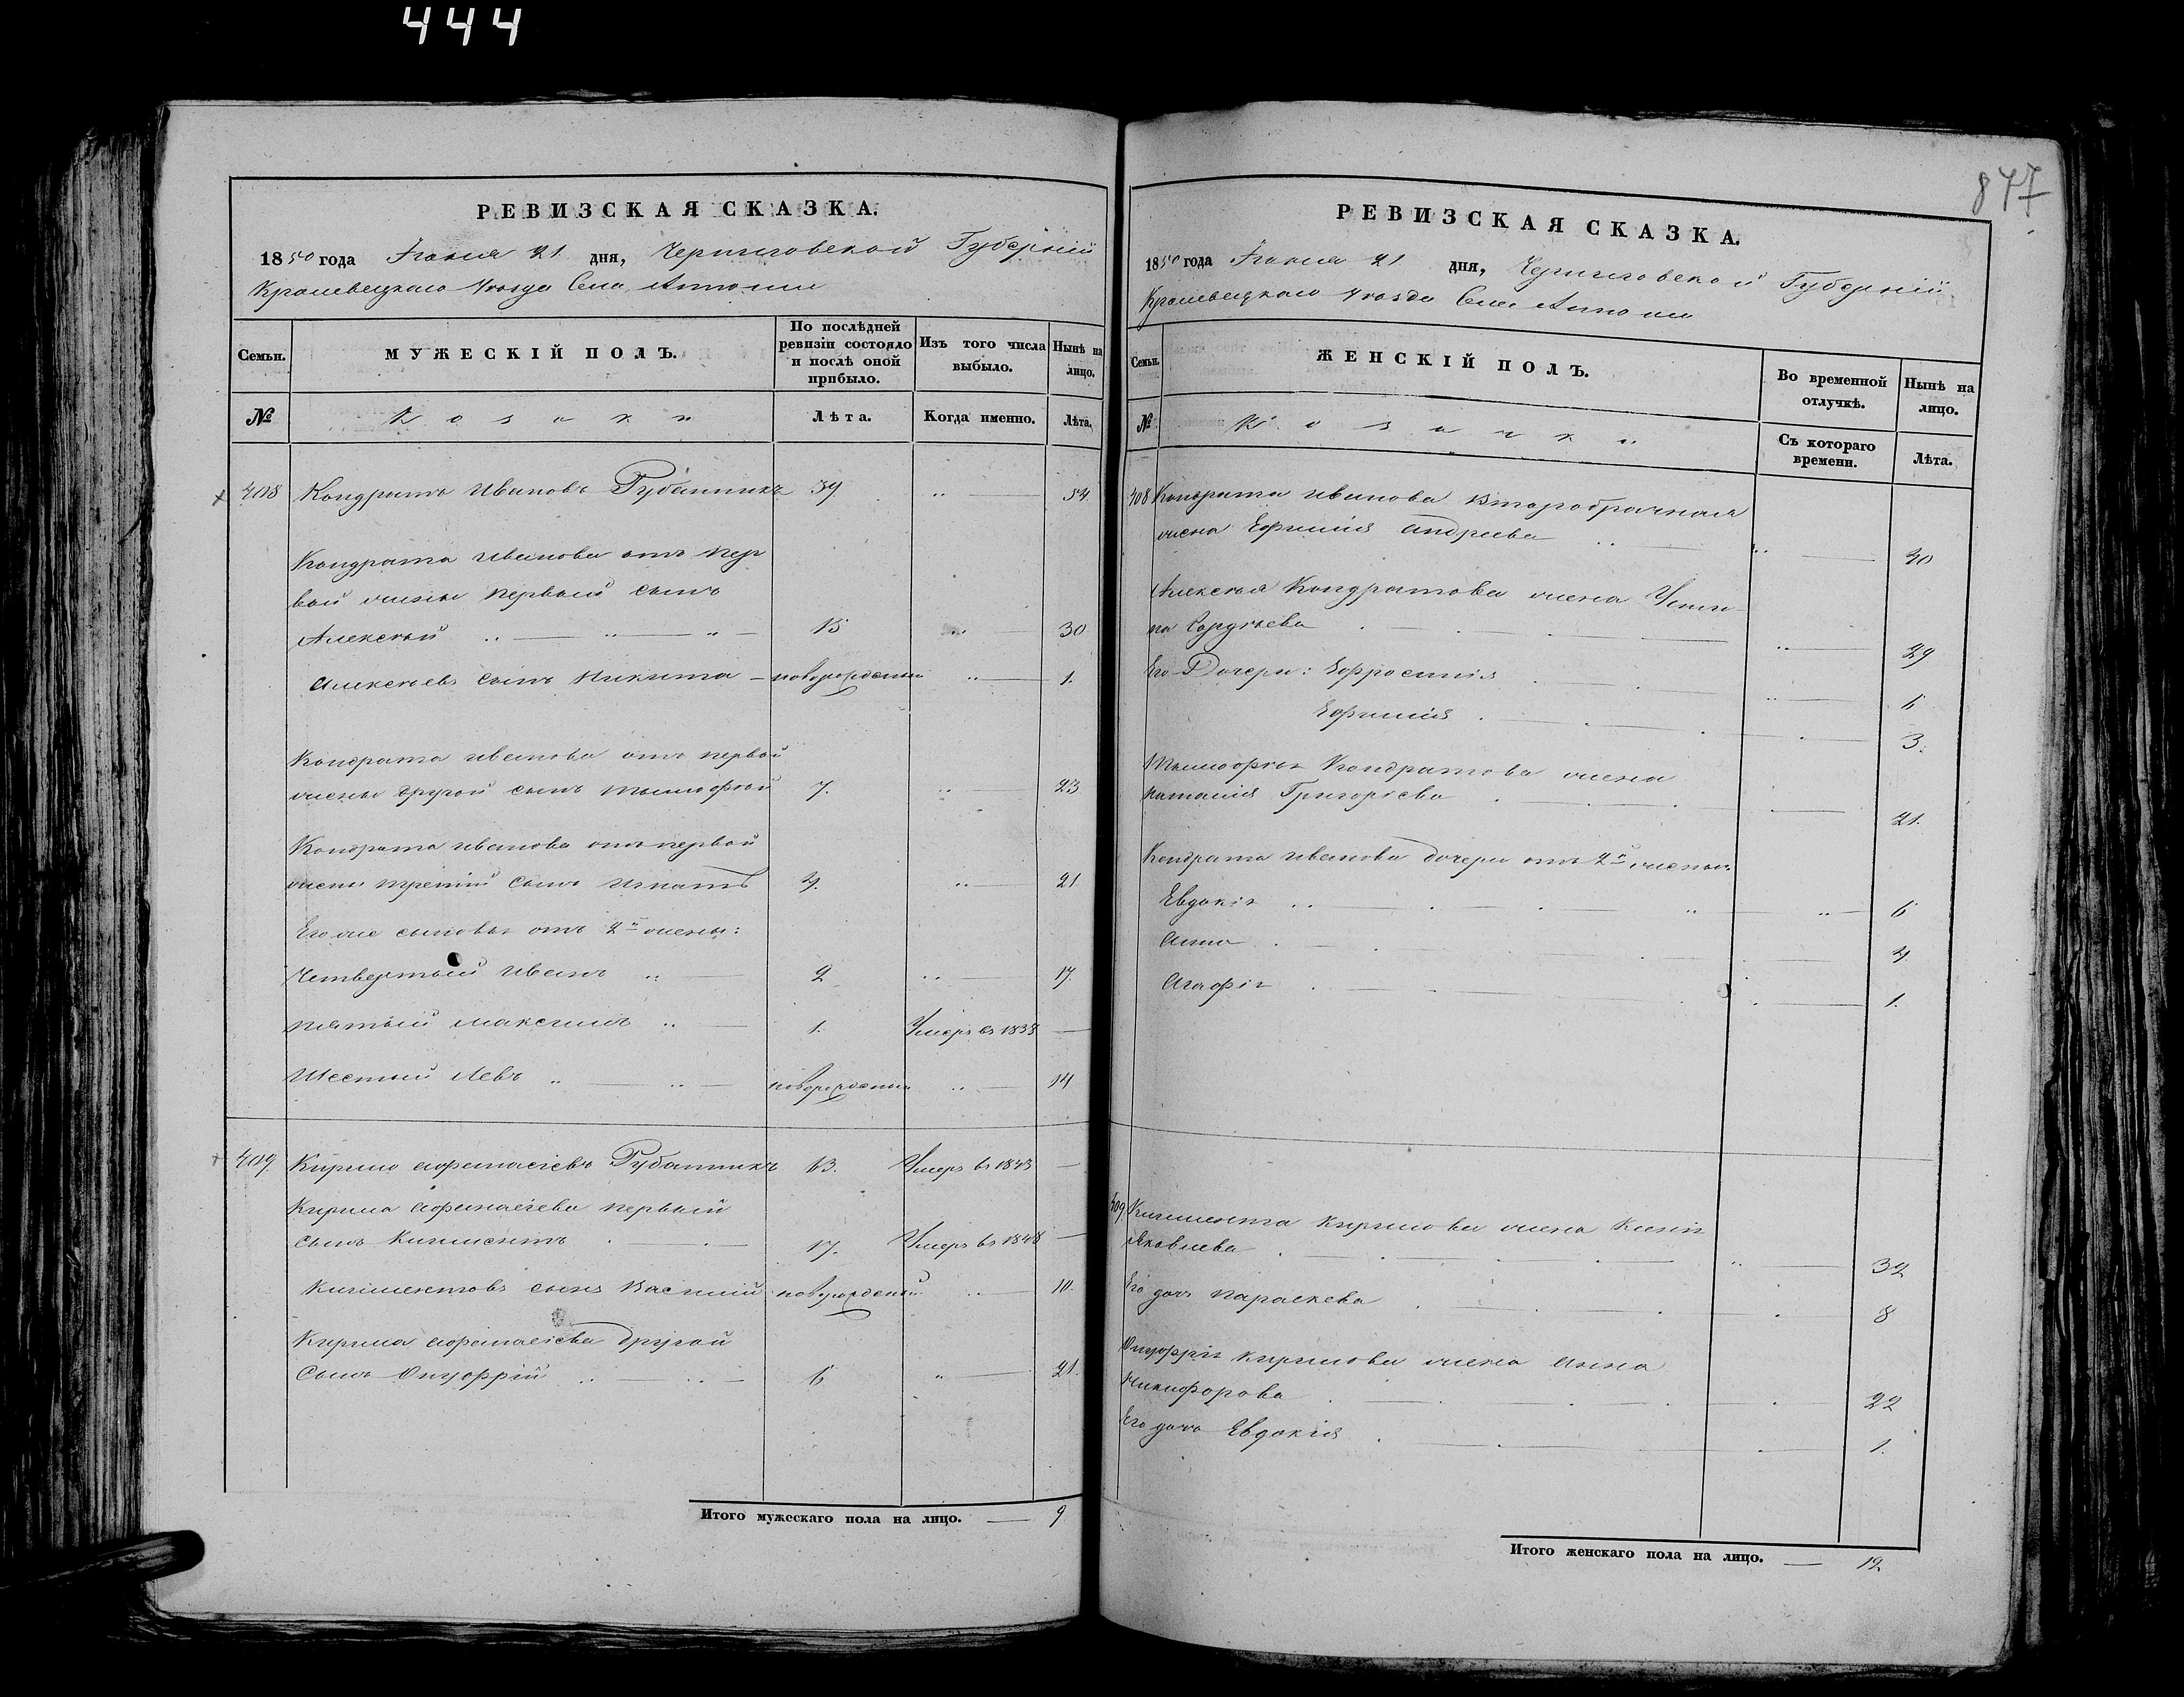 444
РЕВИЗСКАЯ СКАЗКА.
1850 года Іюня 21 дня, Черниговской Губерніи
Кролевецкаго Уезда Села
Семьи.
МУЖЕСКІЙ ПОЛЪ.
По послѣдней ревизіи состояло и послѣ оной прибыло.
Изъ того числа выбыло.
Нынѣ на лицо.
№
Козаки
Лѣта.
Когда именно.
Лѣта.
408 Кондратъ Ивановъ 39 54.
Кондрата Иванова отъ пер
вой жены первый сынъ
Алексѣй 15 30
Алексѣевъ сынъ Никита новорожденный 1.
Кондрата Иванова отъ первой
жены другой сынъ Тымофѣй 7. 23
Кондрата Иванова отъ первой
жены третій сынъ Игнатъ 21.
Его же сыновья отъ 2й жены:
Четвертый Иванъ 2 17.
Пятый Максимъ 1. Умеръ въ 1838
Шестый Левъ новорожденный 14
409. Кирило Афанасіевъ Умеръ въ 1843
Кирила Афанасіева первый
сынъ Климентъ 17. Умеръ въ 1848
Климентовъ сынъ Василій новорожденный 10.
Кирила Афанасіева другой
Сынъ Онуфрій 21.
Итого мужескаго пола на лицо. 9
847
РЕВИЗСКАЯ СКАЗКА.
1850 года Іюня 21 дня, Черниговской Губерніи
Кролевецкаго Уезда Села
Семьи.
ЖЕНСКІЙ ПОЛЪ.
Во временной отлучкѣ.
Нынѣ на лицо.
№
Козачки
Съ котораго времени.
Лѣта.
408 Кондрата Иванова Второбрачная
жена Ефимія Андреева
Алексѣя Кондратова жена
29
Его Дочери: Ефросинія
Ефимія 3.
Тымофѣя Кондратова жена
Наталія Григорьева 21.
Кондрата Иванова дочери отъ 2й жены:
Евдокія
Анна
Агафія 1.
409. Климента Кирилова жена
Яковлева 32
Его дочь Параскева 8
Онуфрія Кирилова жена Анна
Никифорова 22
Его дочь Евдокія 1.
Итого женскаго пола на лицо. 12